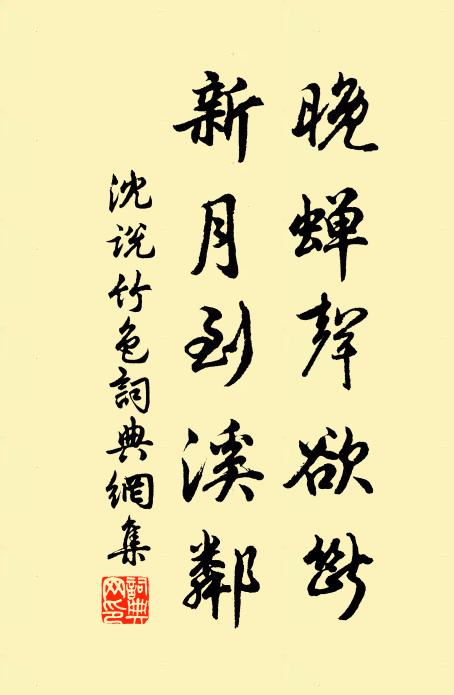 晚蝉聲欲斷
新月到溪鄰
沈説竹色詞典網集
詞典